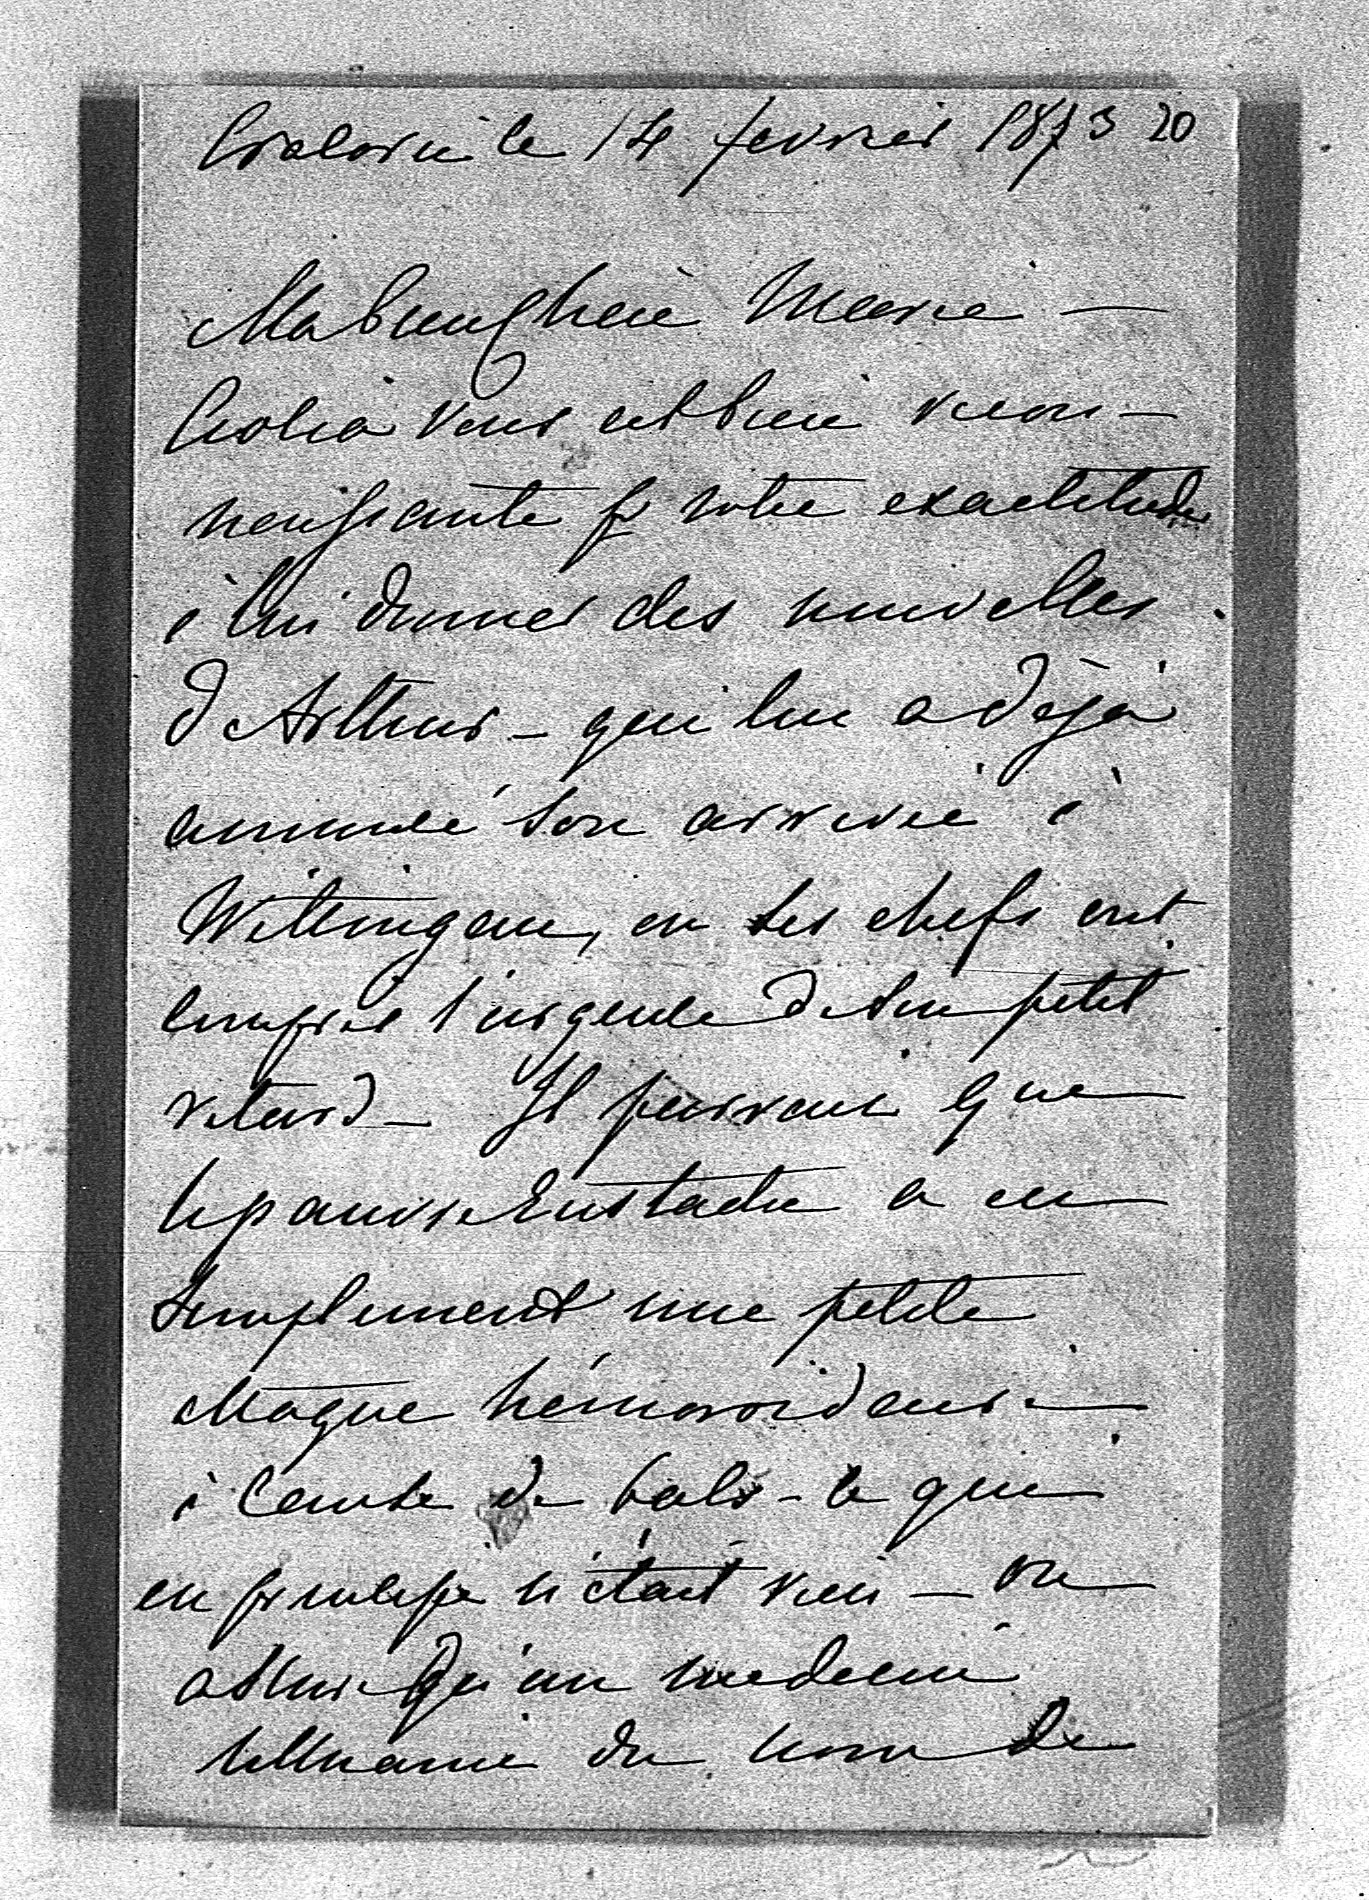 Cracovie le 14 fevrier 1873 20
Ma bien chère Marie —
vous est bien recon-
naissante pr votre exactitude
à lui donner des nouvelles
d'Arthur — qui lui a déjà
annoncé son arrivée à
Wittingau, où ses chefs ont
compris l'urgence de son petit
retard — Il parrait que
le pauvre Eustache a eu
simplement une petite
attaque hémoroidaire
à cause de bals — ce qui
en principe n'était rien — on
assure qu'un medecin
lithuanie du nom de